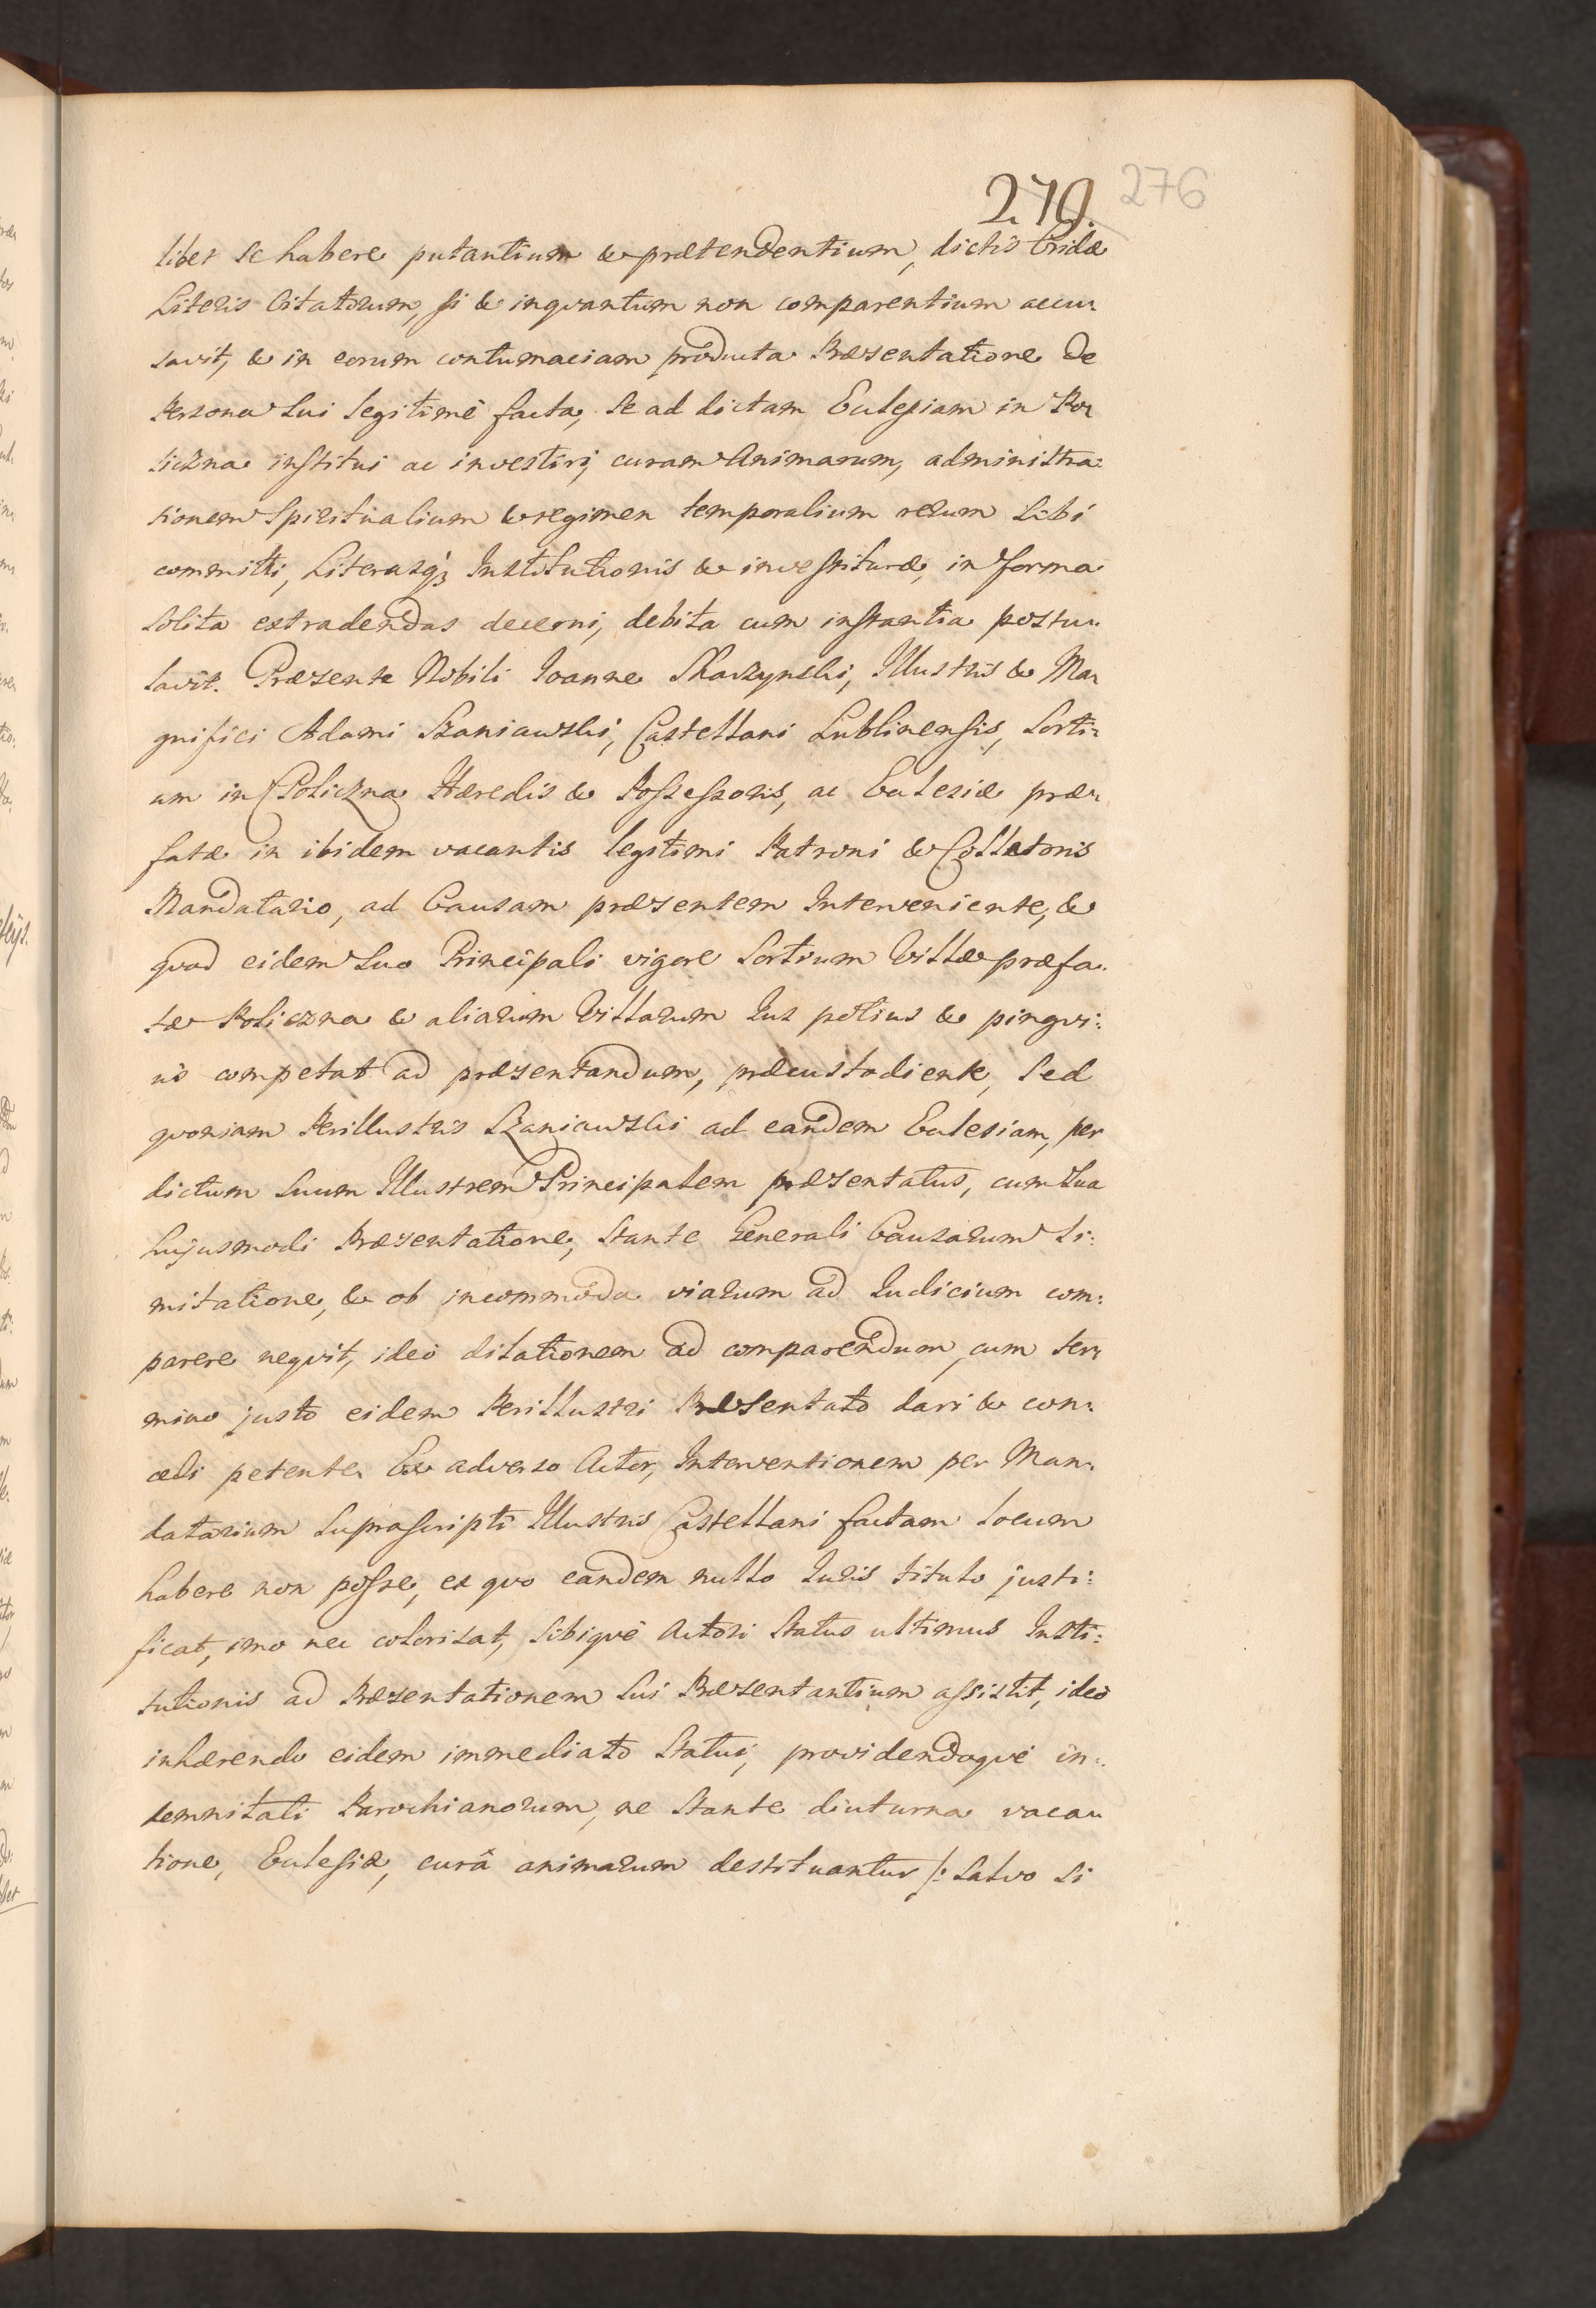 279. 276
libet se habere putantium & prætendentium, dictis Cridæ
Literis Citatorum, si & inqvantum non comparentium accu-
savit, & in eorum contumaciam producta Præsentatione de
Persona Sui legitimè facta, Se ad dictam Eclesiam in Po-
liczna institui ac investiri, curam Animarum, administra:
tionem Spiritualium & regimen temporalium rerum Sibi
committi, Literasq3 Institutionis & investituræ, in forma
Solita extradendas decerni, debita cum instantia postu-
lavit. Præsente Nobili Joanne Skarzynski, Illustris & Ma-
gnifici Adami Szaniawski, Castellani Lublinensis, Sorti-
um in Policzna Hæredis & Possessoris, ac Eclesiæ præ-
fatæ in ibidem vacantis legitimi Patroni & Collatoris
Mandatario, ad Causam præsentem Interveniente, &
qvod eidem Suo Principali vigore Sortium Villæ præfa-
tæ Policzna & aliarum Villarum Jus potius & pingvi:
us competat ad præsentandum, præcustodiente, Sed
qvoniam Perillustris Szaniawski ad eandem Eclesiam, per
dictum Suum Illustrem Principalem præsentatus, cum Sua
hujusmodi Præsentatione, Stante Generali Causarum Li:
mitatione, & ob incommoda viarum ad Judicium com:
parere neqvit, ideò dilationem ad comparendum, cum ter-
mino justo eidem Perillustri Præsentato dari & con-
cedi petente. Ex adverso Actor, Interventionem per Man-
datarium Suprascripti Illustris Castellani factam locum
habere non posse, ex qvo eandem nullo Juris titulo justi:
ficat, imo nec colorisat, Sibiqvè Actori Status ultimus Insti:
tutionis ad Præsentationem Sui Præsentantium assistit, ideò
inhærendo eidem immediato Statui, providendoqvè in-
demnitati Parochianorum, ne Stante diuturna vaca-
tione, Eclesiæ, curâ animarum destituantur /: Salvo Si